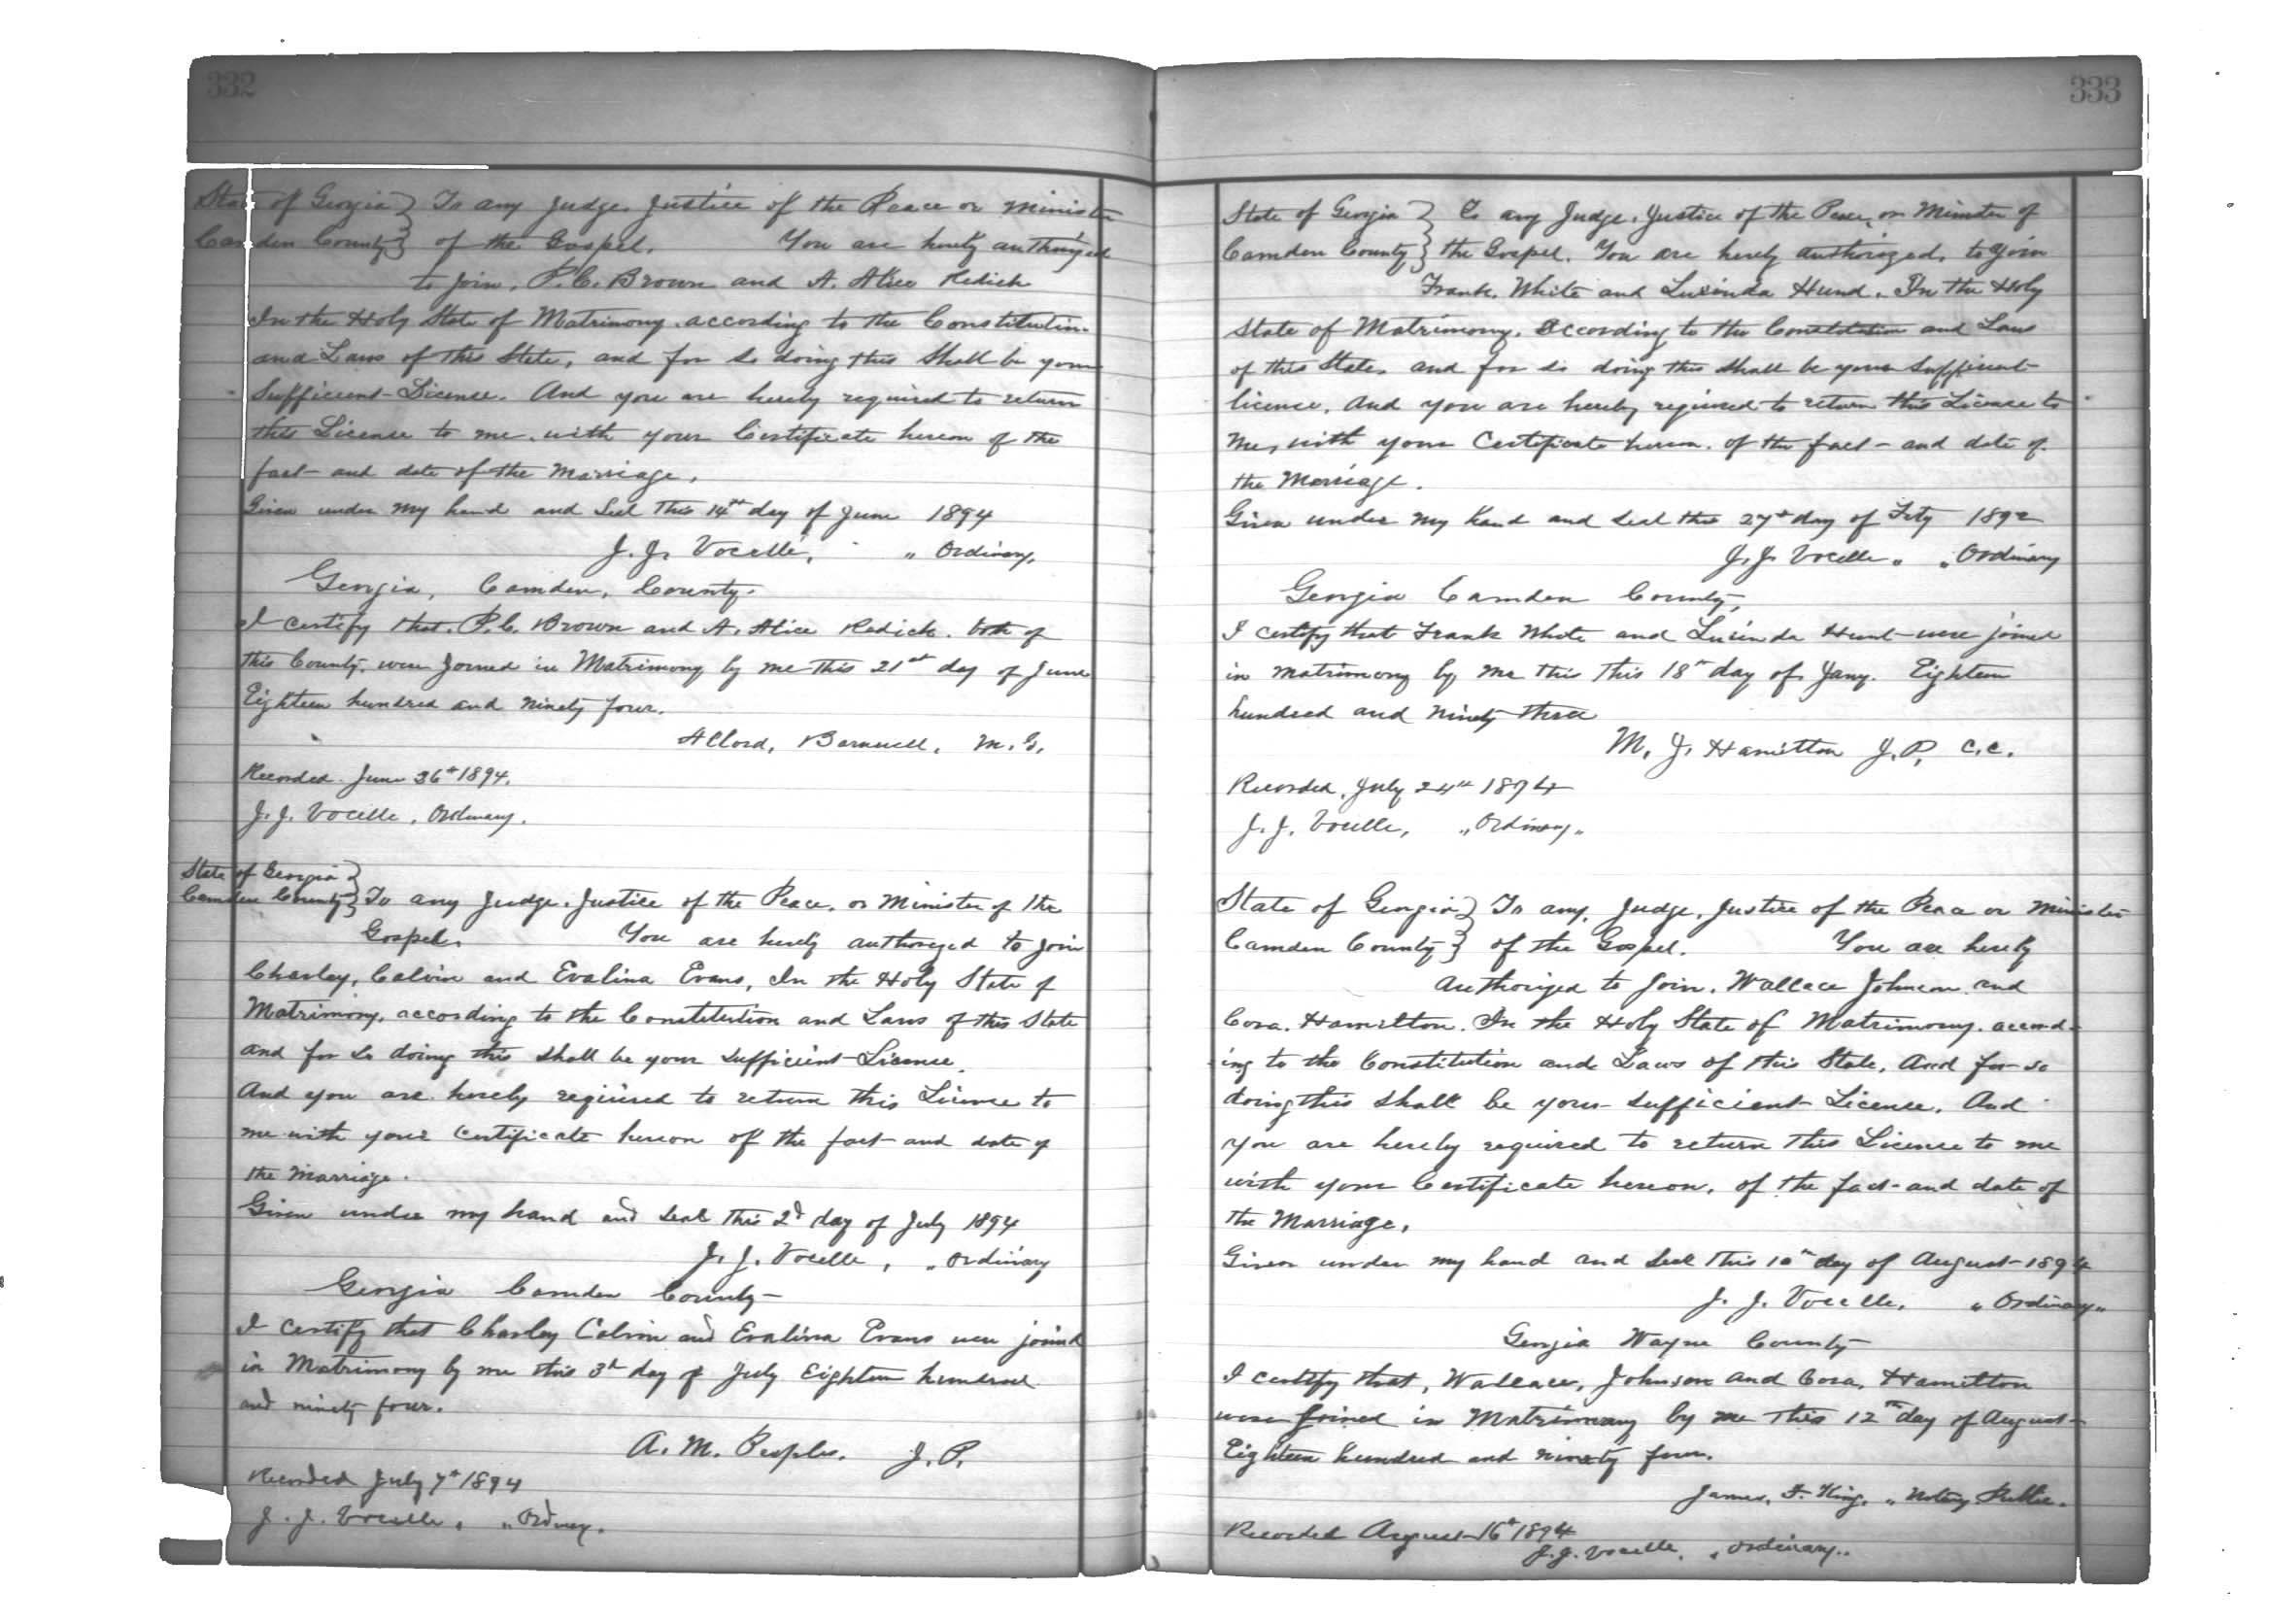 332
State of Georgia } To any Judge, Justice of the Peace or Minister
Camden County } of the Gospel. You are hereby authorized
to join, P. C. Brown and A. Alice Redick
In the Holy State of Matrimony according to the Constitution
and Laws of this State, and for so doing this shall be your
Sufficient License. And you are hereby required to return
this License to me, with your Certificate hereon of the
fact and date of the Marriage.
Given under my hand and Seal this 14th day of June 1894
J. J. Vocelle, " Ordinary.
Georgia, Camden, County.
I certify that P. C. Brown and A. Alice Redick. both of
this County were Joined in Matrimony by me this 21st day of June
Eighteen hundred and ninety four.
Barnwell, M. G.
Recorded June 1894.
J. J. Vocelle, Ordinary.
State of Georgia }
Camden County } To any Judge, Justice of the Peace, or Minister of the
Gospel. You are hereby authorized to join
Charley, Calvin and Evalina Evans, In the Holy State of
Matrimony, according to the Constitution and Laws of this State
and for so doing this shall be your sufficient License.
And you are hereby required to return this License to
me with your Certificate hereon of the fact and date of
the Marriage.
Given under my hand and seal this 2d day of July 1894
J. J. Vocelle, " Ordinary
Georgia Camden County
I certify that Charley Calvin and Evalina Evans were joined
in Matrimony by me this 3d day of July Eighteen hundred
and ninety four.
A. M. Peoples. J. P.
Recorded July 7th 1894
J. J. Vocelle, "
333
State of Georgia } To any Judge, Justice of the Peace, or Minister of
Camden County } the Gospel. You are hereby authorized, to join
Frank, White and Lucinda Hund. In the Holy
State of Matrimony, according to the Constitution and Laws
of this State, and for so doing this shall be your sufficient
license. And you are hereby required to return this License to
me, with your Certificate hereon. of the fact and date of
the Marriage.
Given under my hand and seal this 27th day of
J. J. Vocelle " " Ordinary
Georgia Camden County,
I certify that Frank White and Lucinda Hunt were joined
in matrimony by me this this 18th day of Jany. Eighteen
hundred and ninety three
M. J. Hamilton J. P. C. C.
Recorded, July 24th 1894
J. J. Vocelle, " Ordinary "
State of Georgia } To any, Judge, Justice of the Peace or Minister
Camden County } of the Gospel. You are hereby
authorized to join, Wallace Johnson and
Cora. Hamilton. In the Holy State of Matrimony. accord-
ing to the Constitution and Laws of this State, And for so
doing this shall be your sufficient License. And
you are hereby required to return this License to me
with your Certificate hereon, of the fact and date of
the Marriage.
Given under my hand and seal this 10th day of August 1894
J. J. Vocelle, " Ordinary "
Georgia Wayne County
I certify that, Wallace, Johnson and Cora, Hamilton
were joined in Matrimony by me this 12th day of August
Eighteen hundred and ninety four.
James, F. King, " Notary Public.
Recorded August 16th 1894
J. J. Vocelle, " Ordinary "